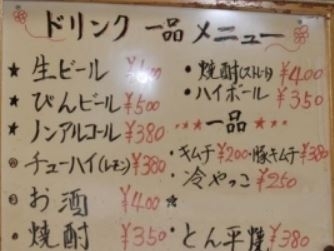 ドリンク 一品 メニュー
★ 生ビール
★ びんビール ¥500
★ ノンアルコール ¥380
◎ チューハイ(レモン) ¥380
◎ お酒 ¥400
◎ 焼酎 ¥350
・焼酎(ストレート) ¥400
・ハイボール ¥350
★★★ 一品 ★★★
・キムチ ¥200 ・豚キムチ ¥380
・冷やっこ ¥250
・とん平焼 ¥380